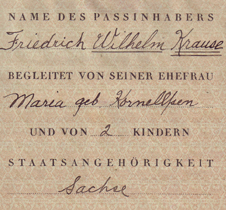 NAME DES PASSINHABERS
Friedrich Wilhelm Krause
BEGLEITET VON SEINER EHEFRAU
Maria geb
UND VON 2 KINDERN
STAATSANGEHÖRIGKEIT
Sachse